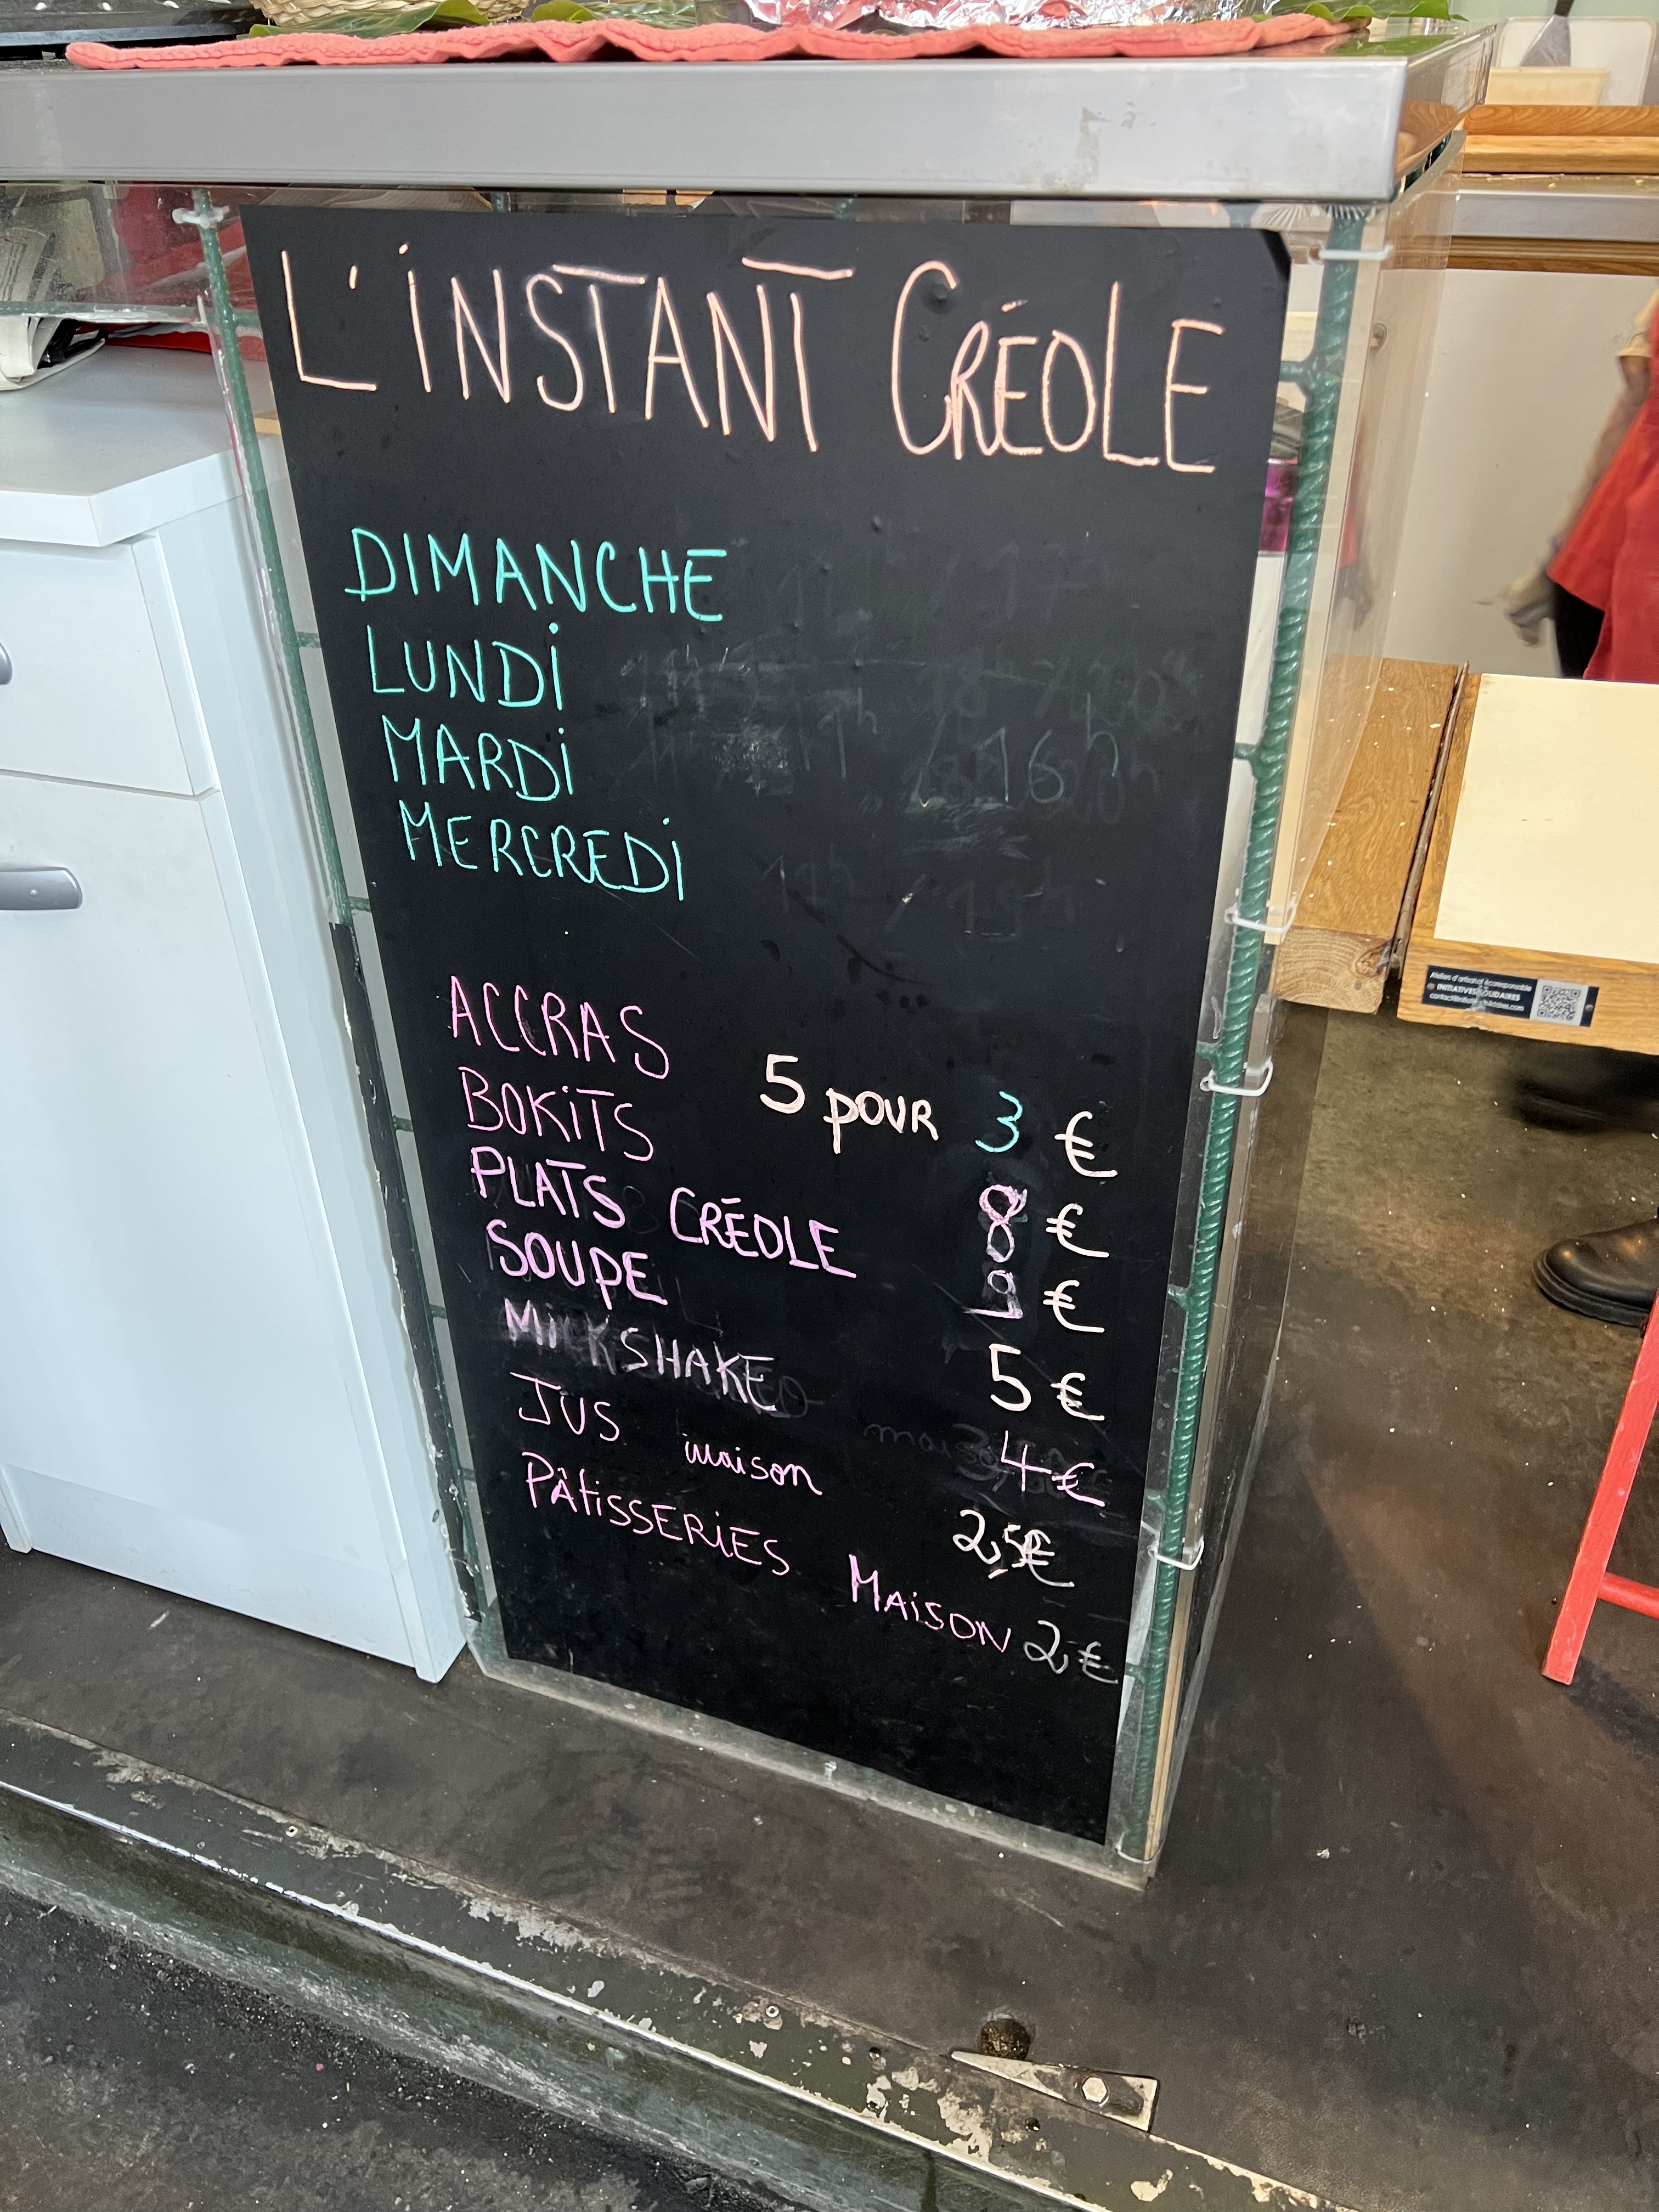 L'INSTANT CRÉOLE
DIMANCHE
LUNDI
MARDI 11h / 16h
MERCREDI
ACCRAS 5 POUR 3 €
BOKITS 8 €
PLATS CRÉOLE 9 €
SOUPE 5 €
MILKSHAKE 4 €
JUS maison 2,5€
PÂTISSERIES MAISON 2€
INITIATIVES SOLIDAIRES